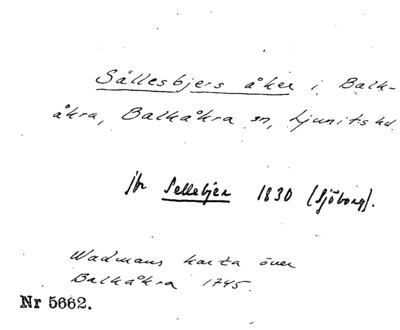 Sällesbjers åker i Balk-
åkra, Balkåkra sn, Ljunits hd.
jfr Sellebjer 1830 (Sjöborg).
Wadmans karta över
Balkåkra 1745.
Nr 5662.